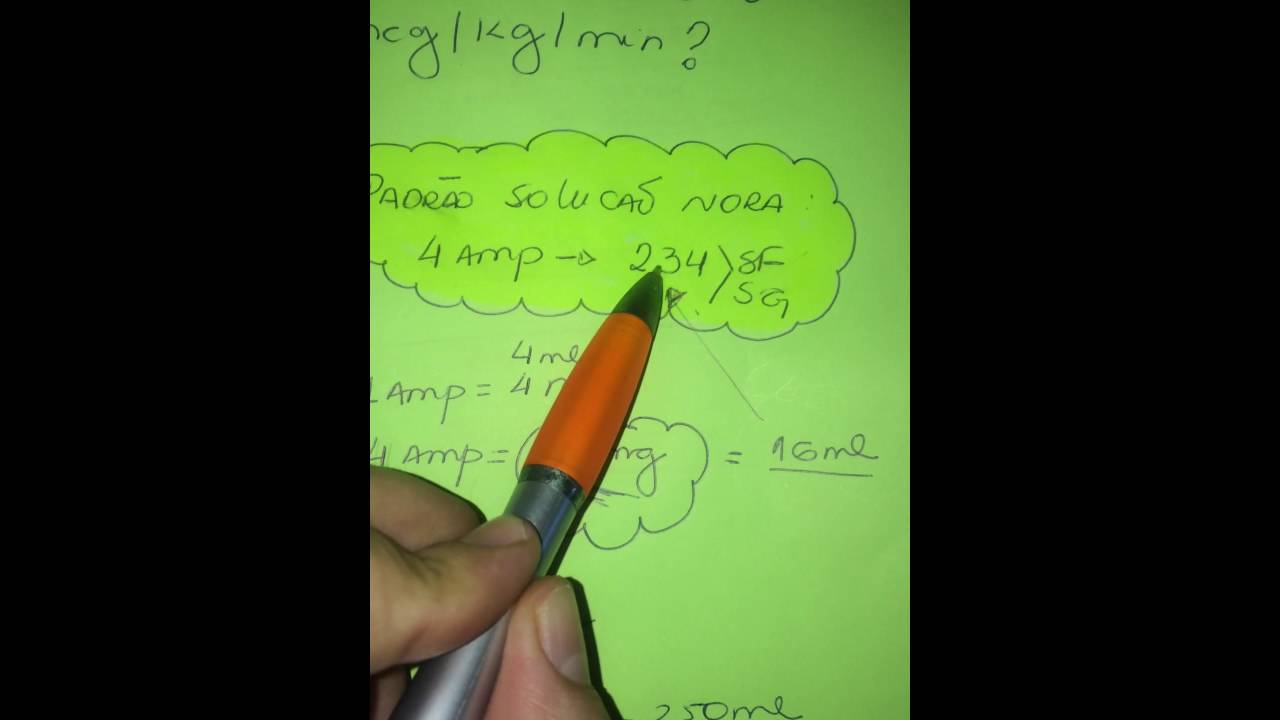 mcg/kg/min?
PADRÃO SOLUCAÕ NORA:
4 AMP → 234 SF
SG
4 ml
1 AMP = 4
4 AMP = mg = 16 ml
250 ml